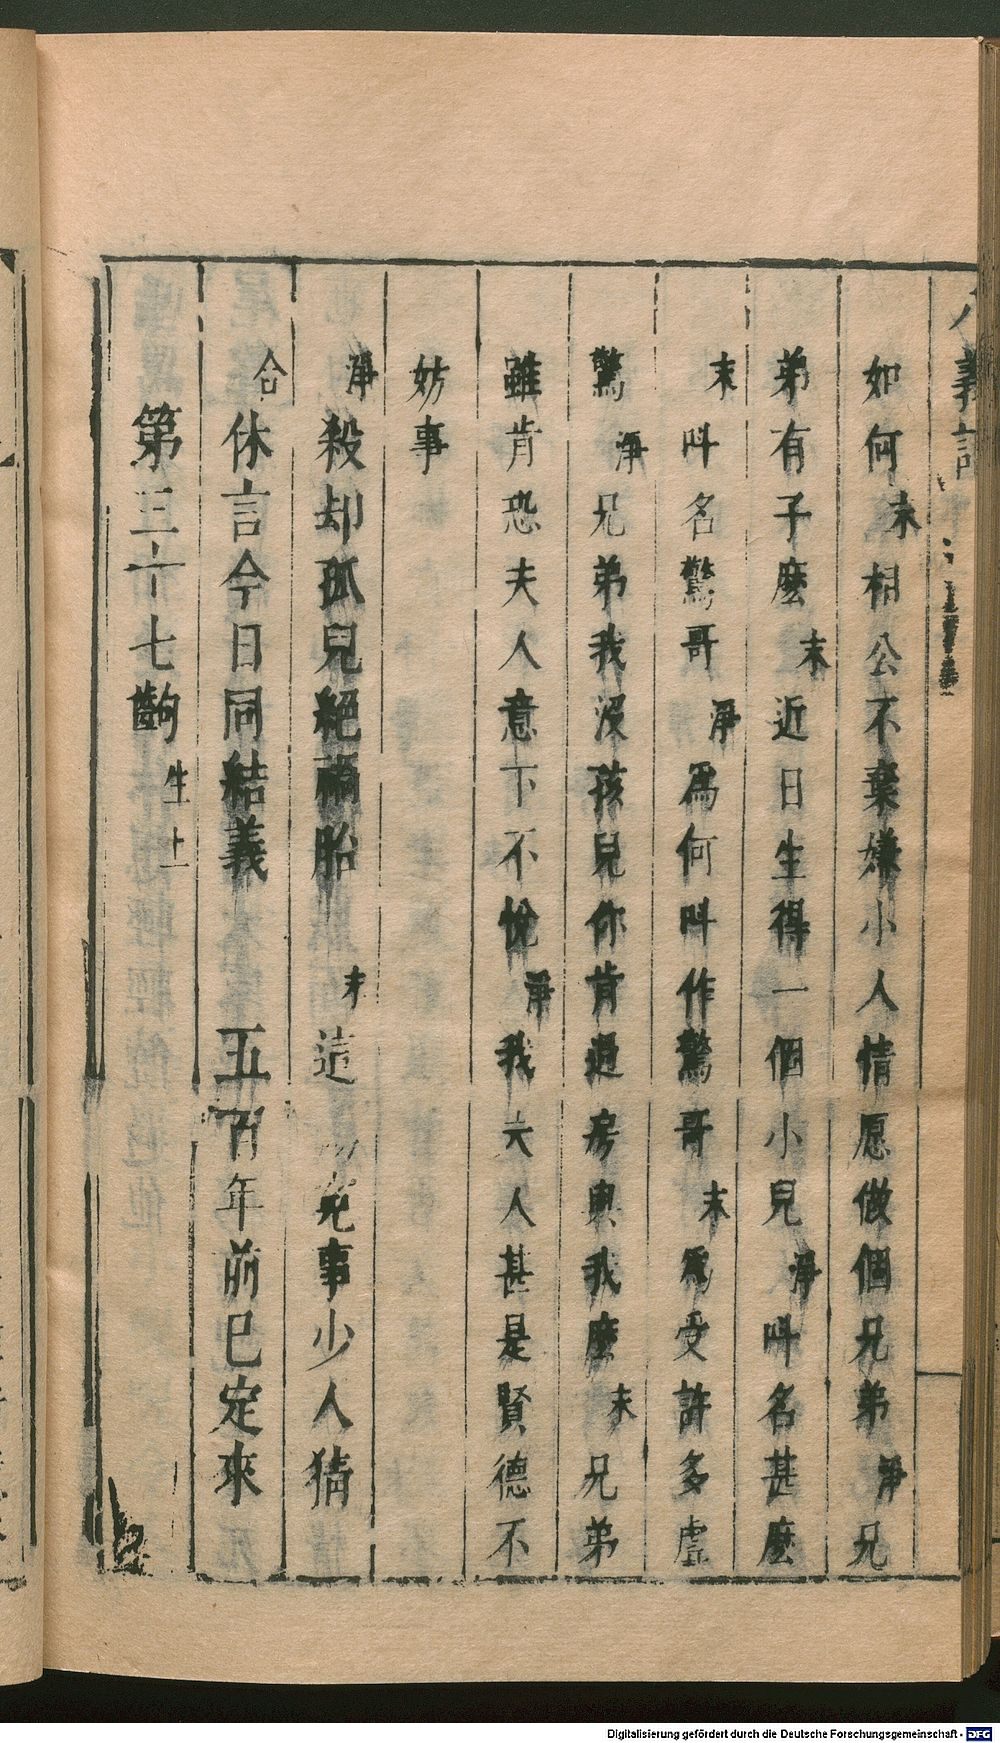 八義記
如何末相公不棄嫌小人情愿做個兄弟淨兄
弟有子麽末近日生得一個小兒淨叫名甚麽
末叫名驚哥淨爲何叫作驚哥末爲受許多虛
驚淨兄弟我沒孩兒你肯過房與我麽末兄弟
雖肯恐夫人意下不悅淨我夫人甚是賢德不
妨事
淨殺却孤兒絕禍胎末這 冤事少人猜
合休言今日同結義 五百年前已定來
第三十七齣生上
Digitalisierung gefördert durch die Deutsche Forschungsgemeinschaft - DFG